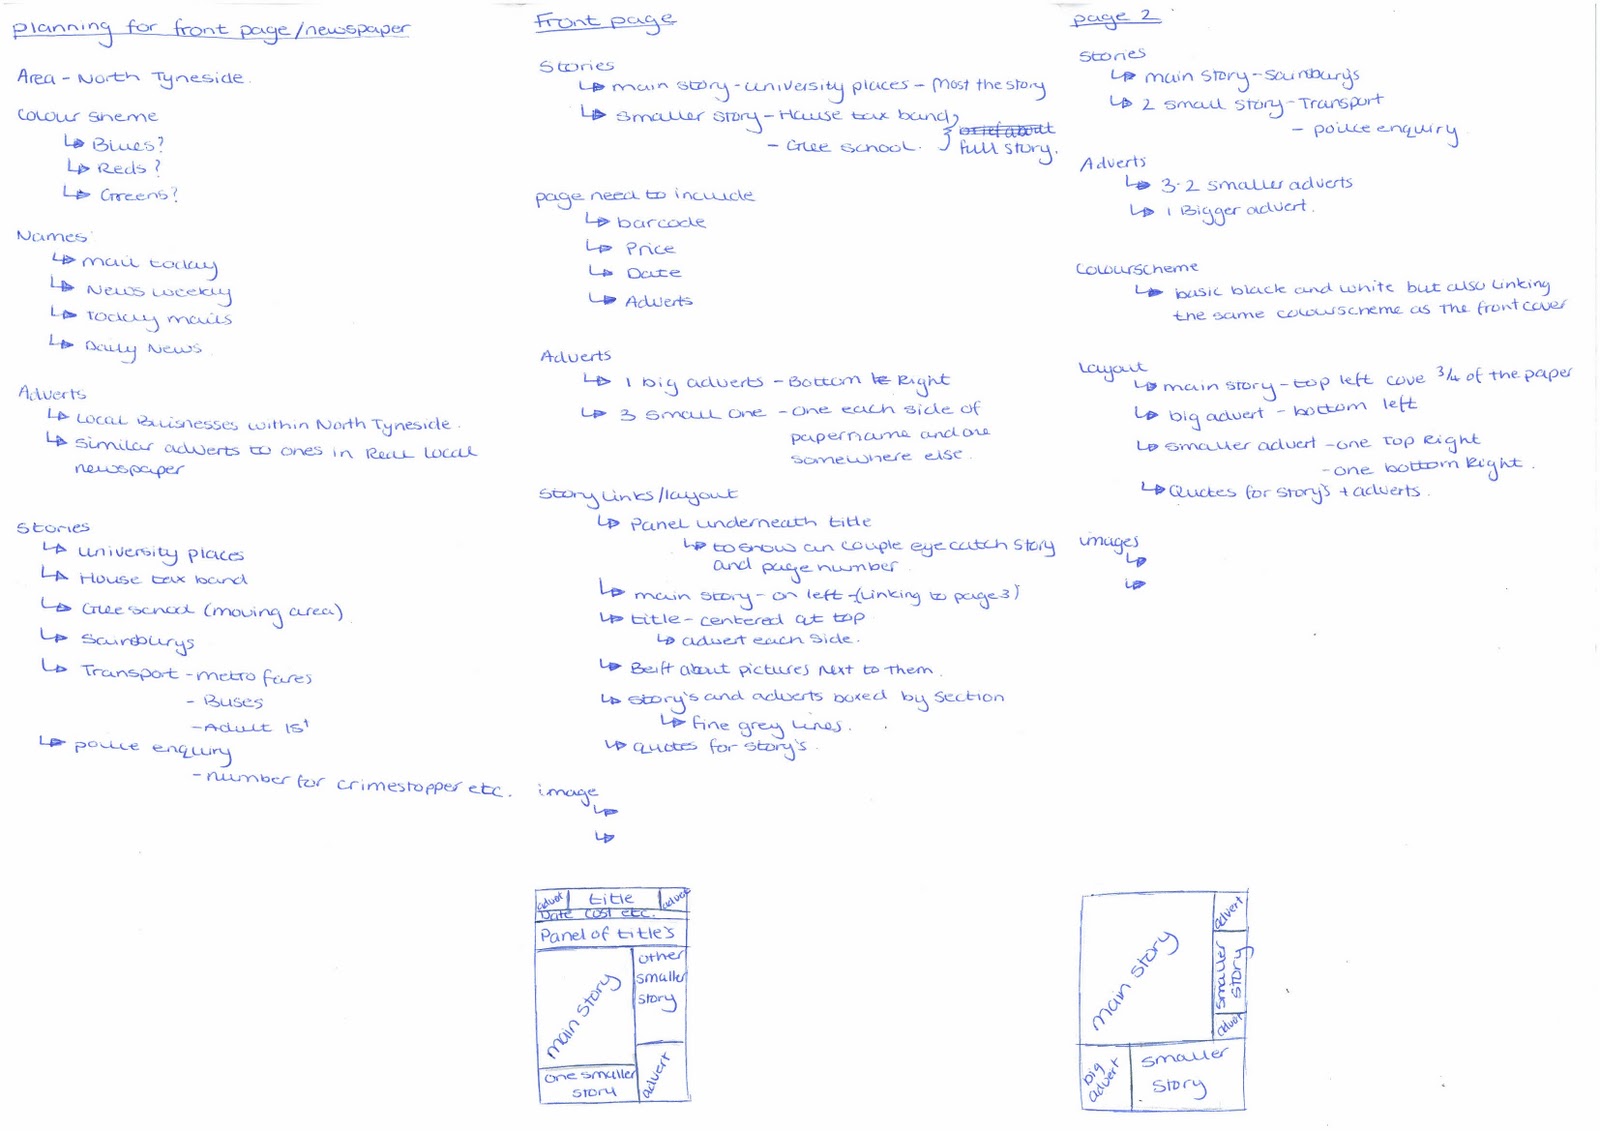 planning for front page/newspaper
Area - North Tyneside.
Colour sheme
↳ Blues?
↳ Reds?
↳ Greens?
Names
↳ mail today
↳ News weekly
↳ Today mails
↳ Daily News
Adverts
↳ Local Buisnesses within North Tyneside.
↳ similar adverts to ones in Real Local
newspaper
Stories
↳ university places
↳ House tax band
↳ Glee school (moving area)
↳ Sainsburys
↳ Transport - metro fares
- Buses
- Adult 1st
↳ police enquiry
- number for crimestopper etc.
Front page
Stories
↳ main story - university places - Most the story
↳ smaller story - House tax band
- Glee school.
brief about
full story.
page need to include
↳ barcode
↳ Price
↳ Date
↳ Adverts
Adverts
↳ 1 big adverts - Bottom Right
↳ 3 small one - one each side of
papername and one
somewhere else.
Story Links/layout
↳ Panel underneath title
↳ to show an couple eye catch story
and page number
↳ main story - on left - (linking to page 3)
↳ title - centered at top
↳ advert each side.
↳ Beift about pictures next to them.
↳ story's and adverts boxed by section
↳ fine grey lines.
↳ quotes for story's.
image
↳
↳
advert title advert
Date cost etc.
Panel of title's
main story
other
smaller
story
one smaller
story
advert
page 2
Stories
↳ main story - Sainsbury's
↳ 2 small story - Transport
- police enquiry
Adverts
↳ 3-2 smaller adverts
↳ 1 Bigger advert.
Colourscheme
↳ basic black and white but also linking
the same colourscheme as the front cover
layout
↳ main story - top left cove 3/4 of the paper
↳ big advert - bottom left
↳ smaller advert - one Top Right
- one bottom Right.
↳ Quotes for story's + adverts.
images
↳
↳
main story
advert
smaller
story
advert
big
advert
smaller
story